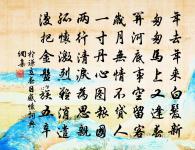 年去年來白髮新
匆匆馬上又逢春
關河底事空留客
歲月無情不貸人
一寸丹心圖報國
兩行清淚為思親
孤懷激烈難消遣
漫把金盤簇五辛
於謙立春日感懷詞典
網集